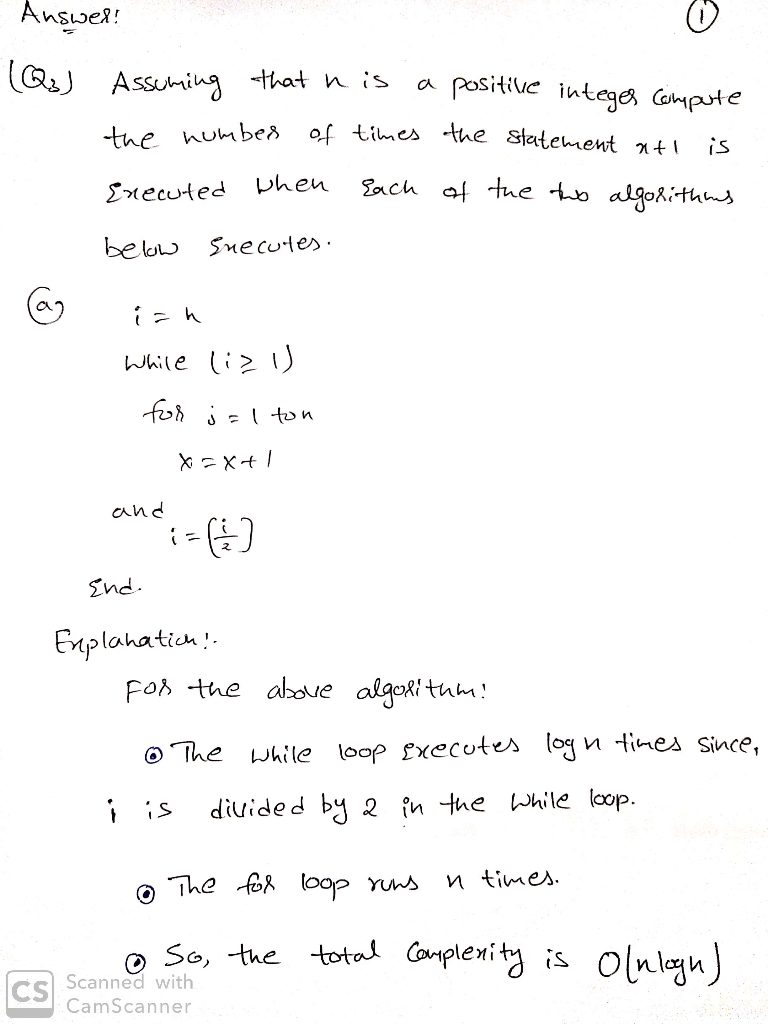 Answer:
①
(Q3) Assuming that n is a positive integer compute
the number of times the statement x+1 is
Executed when Each of the two algorithms
below Executes.
(a) i = n
while (i ≥ 1)
for j = 1 to n
x = x + 1
end
i = [i/2]
End.
Explanation:-
For the above algorithm:
⊙ The while loop Executes log n times since,
i is divided by 2 in the while loop.
⊙ The for loop runs n times.
⊙ So, the total Complexity is O(nlogn)
CS Scanned with
CamScanner